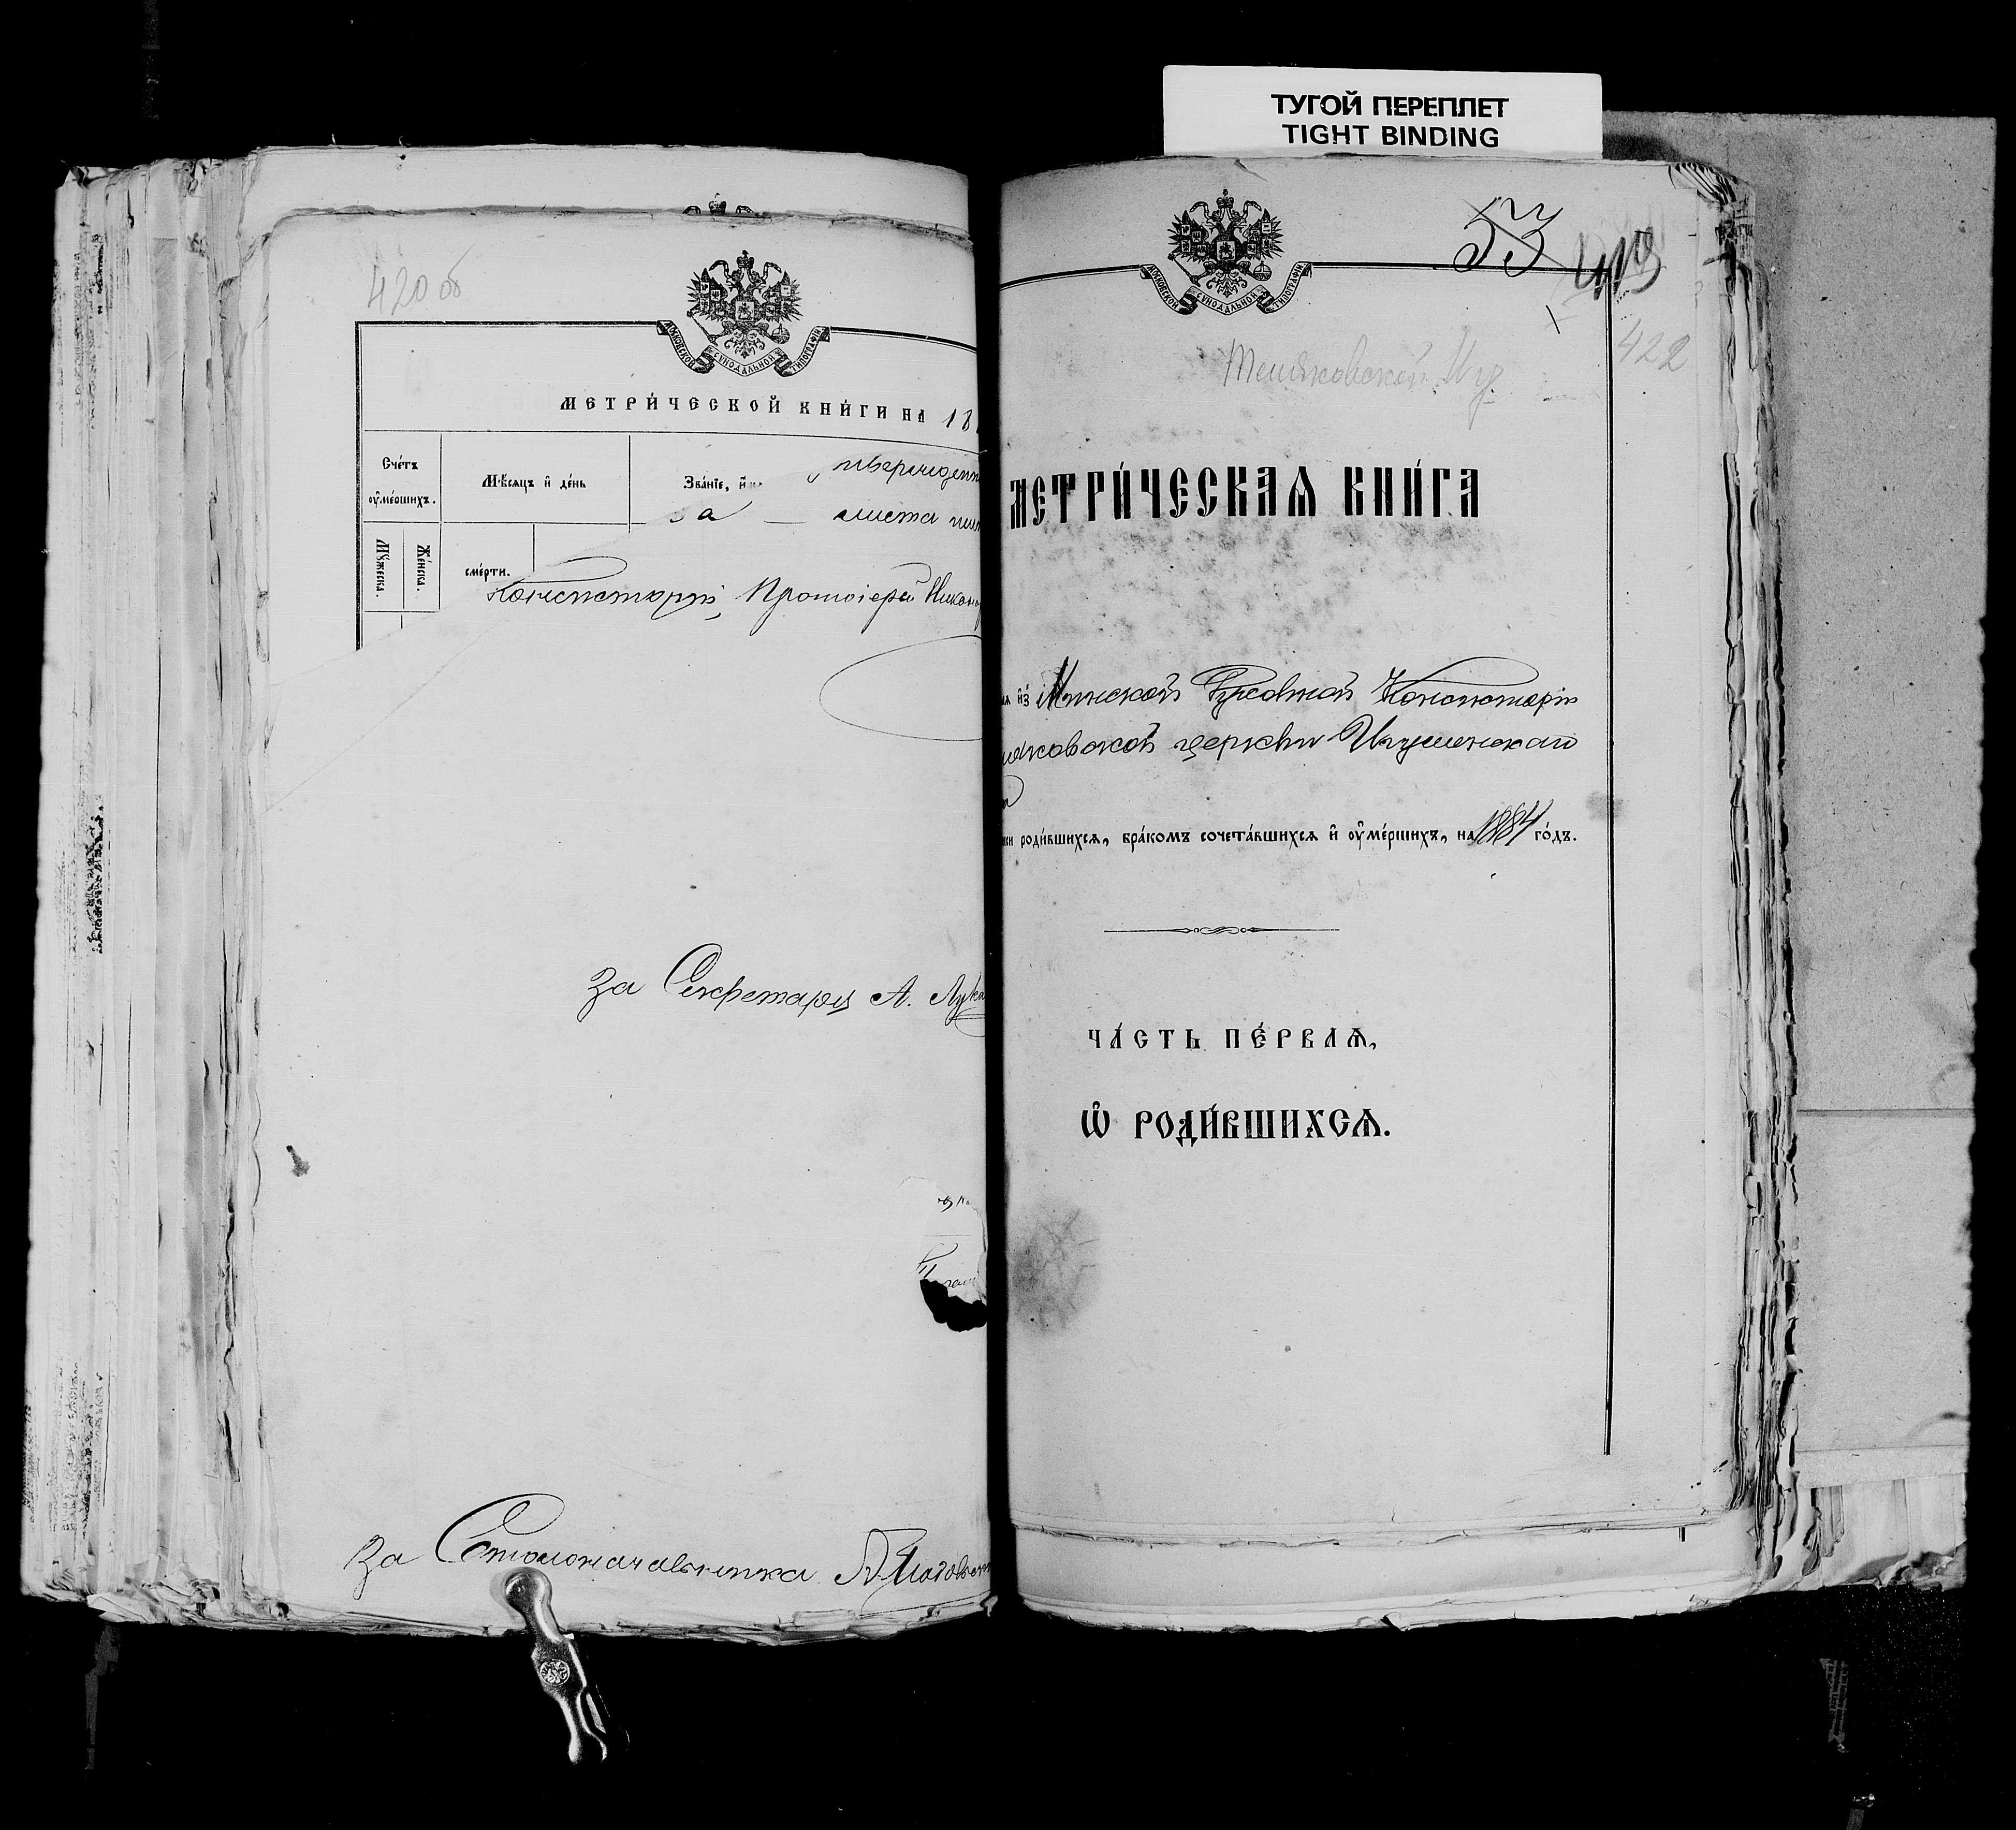 ТУГОЙ ПЕРЕПЛЕТ
TIGHT BINDING
420 об
МОСКОВСКОЙ СѴНОДАЛЬНОЙ ТИПОГРАФІИ
МЕТРИ́ЧЕСКОЙ КНИ́ГИ НА 18
Сче́тъ оу҆ме́ршихъ.
Мѣ́сяцъ и҆ де́нь
Зва́нїе,
а — листа
Му́жеска.
Же́нска.
сме́рти.
Консисторіи, Протоіерей
За Секретаря А.
За Столоначальника
МОСКОВСКОЙ СѴНОДАЛЬНОЙ ТИПОГРАФІИ
53
422
МЕТРИ́ЧЕСКАѦ КНИ́ГА
и҆з̾ Минской Духовной Консисторіи
церкви Игуменскаго
роди́вшихсѧ, бра́комъ сочета́вшихсѧ и҆ оу҆ме́ршихъ, на 1884 го́дъ.
ЧА́СТЬ ПЕ́РВАѦ,
Ѽ РОДИ́ВШИХСѦ.